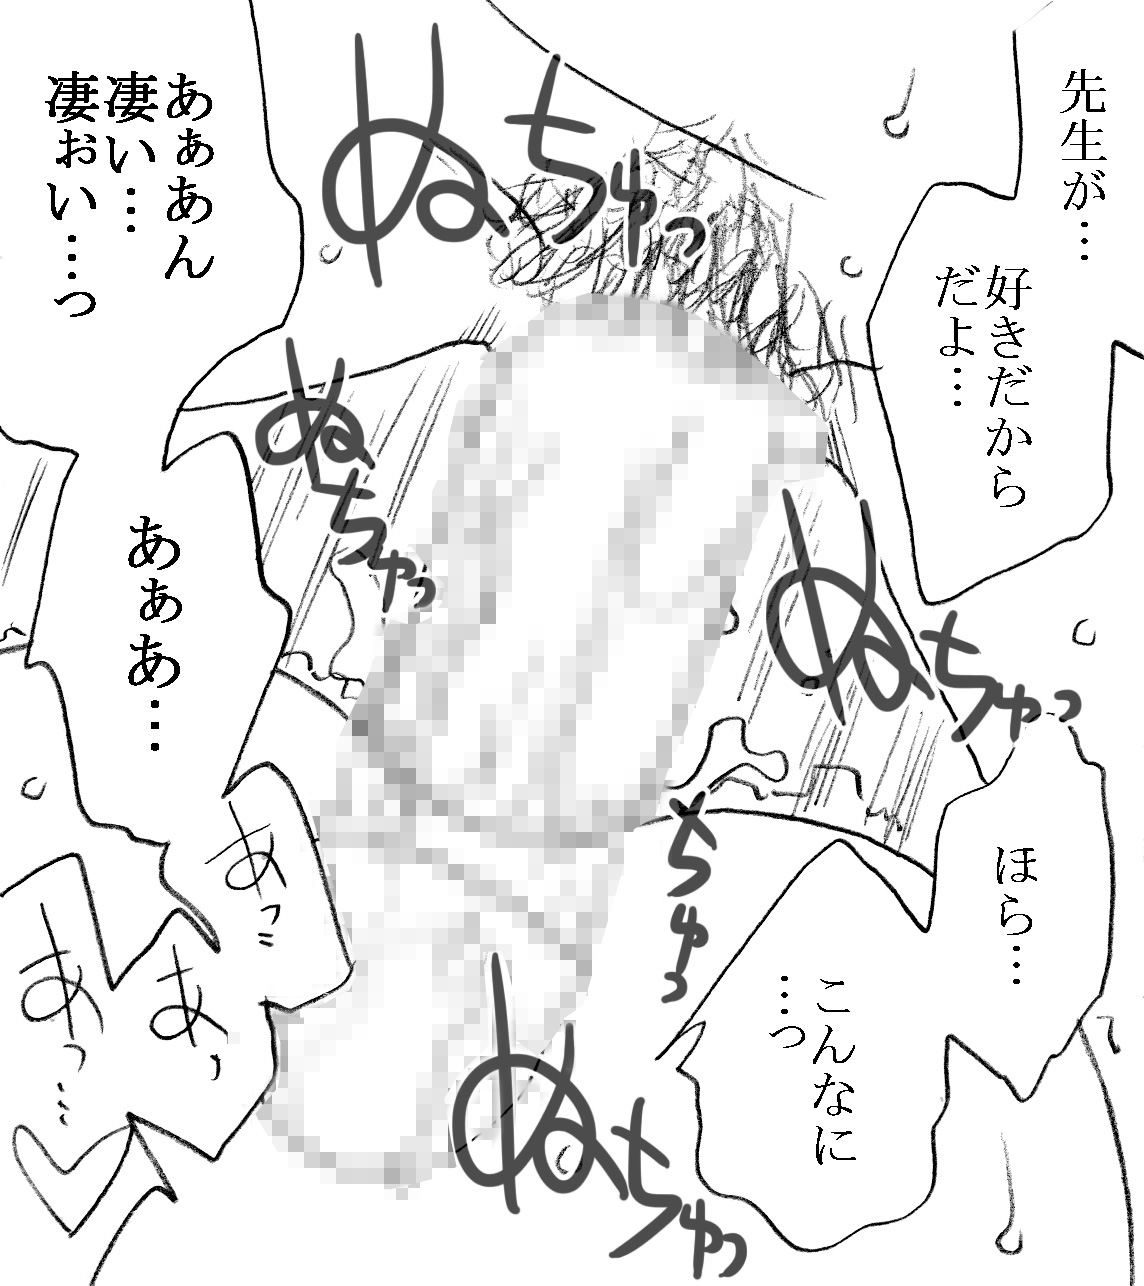 先生が…
好きだから
だよ…
ほら…
こんなに
…っ
あぁあん
凄い…
凄ぉい…っ
あぁあ…
あっ
あっ
あっ…
ぬちゅっ
ぬちゅっ
ぬちゅっ
ぬちゅっ